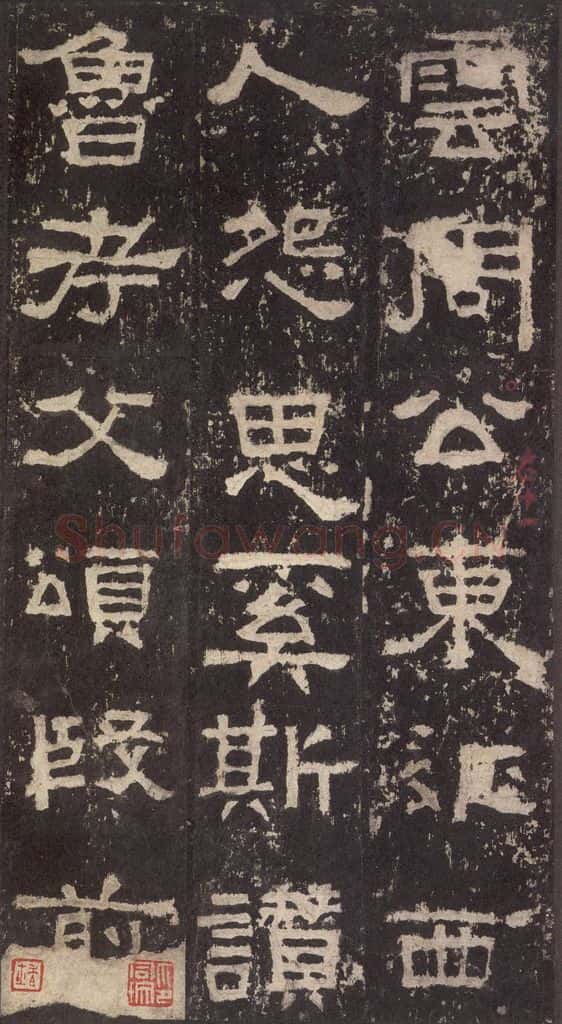 雲周公東征西
人怨思奚斯讚
魯考父頌殷前
Shufawang.CN